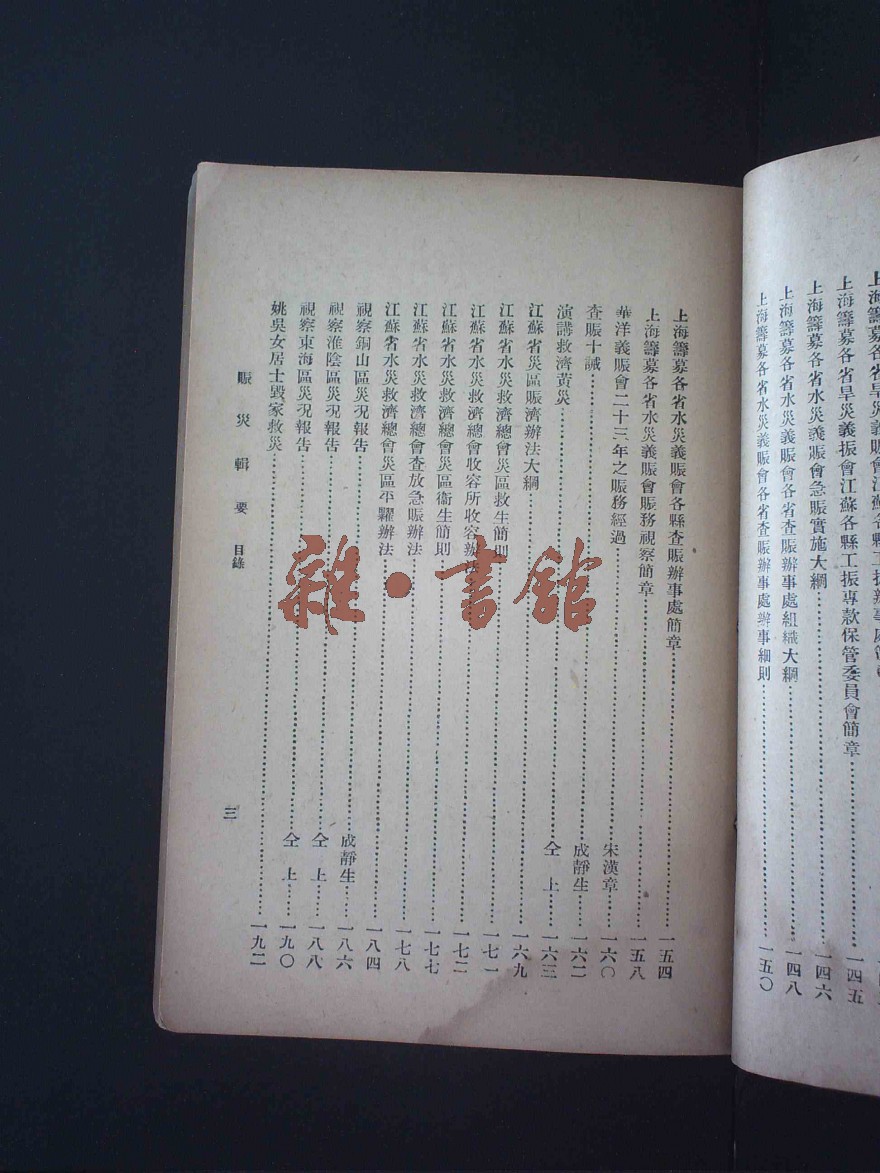 上海籌募各省旱災義振會江蘇各縣工振專款保管委員會簡章……一四五
上海籌募各省水災義賑會急賑實施大綱……一四六
上海籌募各省水災義賑會各省查賑辦事處組織大綱……一四八
上海籌募各省水災義賑會各省查賑辦事處辦事細則……一五〇
上海籌募各省水災義賑會各縣查賑辦事處簡章……一五四
上海籌募各省水災義賑會賑務視察簡章……一五八
華洋義賑會二十三年之賑務經過……宋漢章……一六〇
查賑十誡……成靜生……一六二
演講救濟黃災……仝上……一六三
江蘇省災區賑濟辦法大綱……一六九
江蘇省水災救濟總會災區救生簡則……一七一
江蘇省水災救濟總會收容所收容辦法……一七二
江蘇省水災救濟總會災區衞生簡則……一七七
江蘇省水災救濟總會查放急賑辦法……一七八
江蘇省水災救濟總會災區平糶辦法……一八四
視察銅山區災況報告……成靜生……一八六
視察淮陰區災況報告……仝上……一八八
視察東海區災況報告……仝上……一九〇
姚吳女居士毀家救災……一九二
賑災輯要 目錄
三
雜·書館